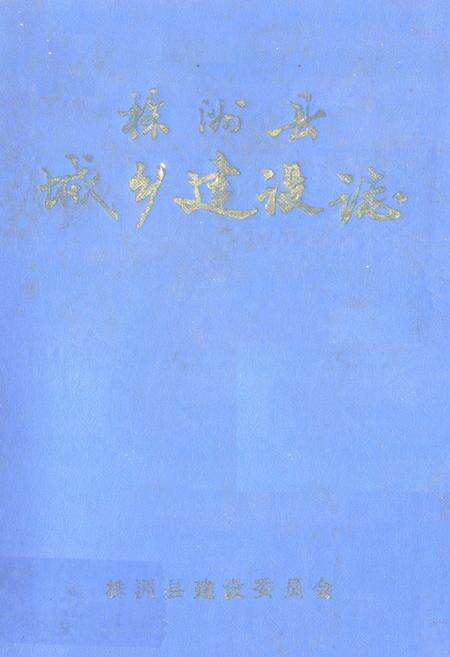 株洲县
城乡建设誌
株洲县建设委员会